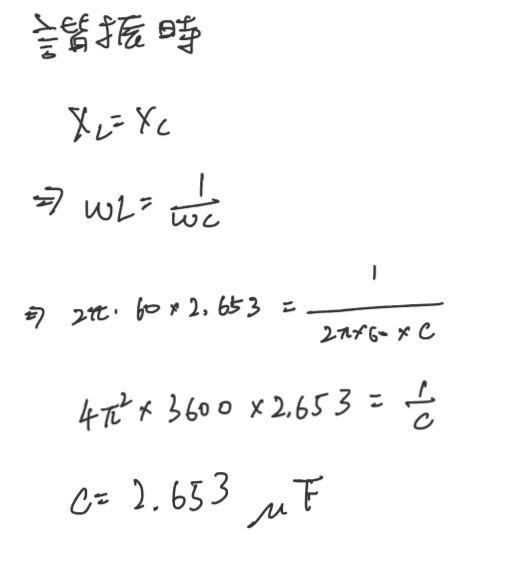 諧振時
X_L = X_C
⇒ ωL = 1/ωC
⇒ 2π · 60 × 2.653 = 1/(2π×60 × C)
4π² × 3600 × 2.653 = 1/C
C = 2.653 μF